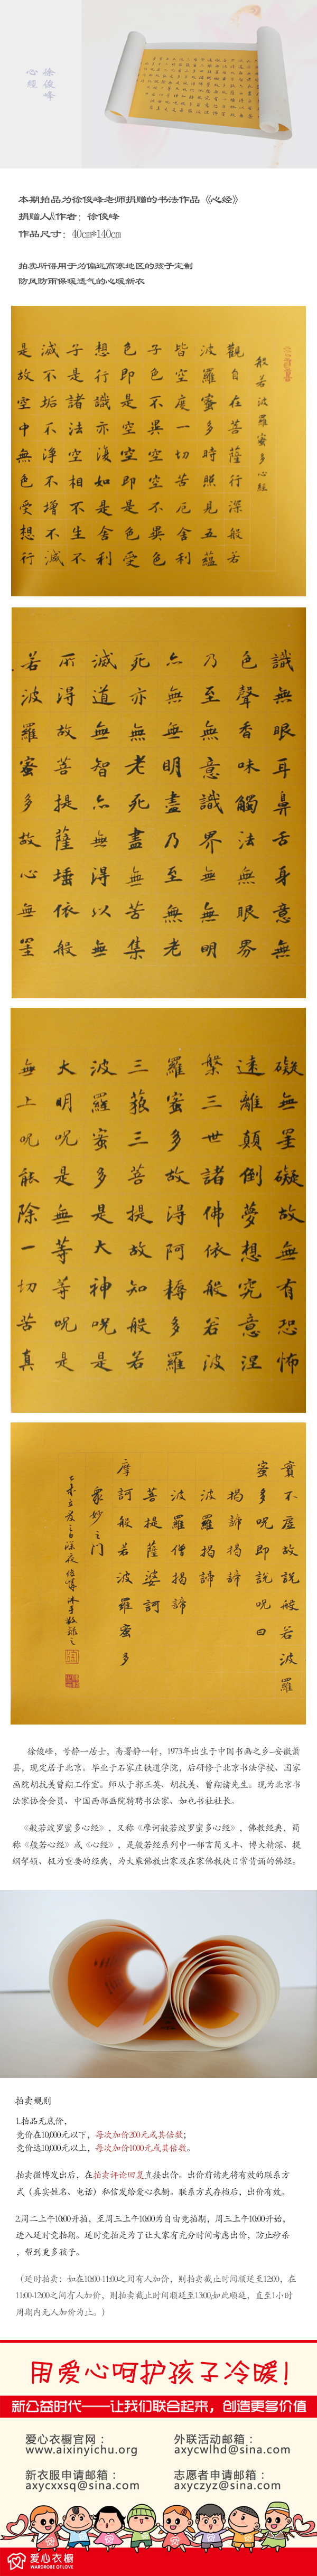 徐俊峰
心經
本期拍品为徐俊峰老师捐赠的书法作品《心经》
捐赠人&作者：徐俊峰
作品尺寸：40cm*140cm
拍卖所得用于为偏远高寒地区的孩子定制
防风防雨保暖透气的心暖新衣
般若波羅蜜多心經
觀自在菩薩行深般若
波羅蜜多時照見五蘊
皆空度一切苦厄舍利
子色不異空空不異色
色即是空空即是色受
想行識亦復如是舍利
子是諸法空相不生不
滅不垢不淨不增不滅
是故空中無色受想行
識無眼耳鼻舌身意無
色聲香味觸法無眼界
乃至無意識界無無明
亦無無明盡乃至無老
死亦無老死盡無苦集
滅道無智亦無得以無
所得故菩提薩埵依般
若波羅蜜多故心無罣
礙無罣礙故無有恐怖
遠離顛倒夢想究竟涅
槃三世諸佛依般若波
羅蜜多故得阿耨多羅
三藐三菩提故知般若
波羅蜜多是大神咒是
大明咒是無等等咒是
無上咒能除一切苦真
實不虛故說般若波羅
蜜多咒即說咒曰
揭諦揭諦
波羅揭諦
波羅僧揭諦
菩提薩婆訶
摩訶般若波羅蜜多
衆妙之門
徐俊峰，号静一居士，斋署静一轩，1973年出生于中国书画之乡--安徽萧
县，现定居于北京。毕业于石家庄铁道学院，后研修于北京书法学校、国家
画院胡抗美曾翔工作室。师从于郭正英、胡抗美、曾翔诸先生。现为北京书
法家协会会员、中国西部画院特聘书法家、如也书社社长。
《般若波罗蜜多心经》，又称《摩诃般若波罗蜜多心经》，佛教经典，简
称《般若心经》或《心经》，是般若经系列中一部言简义丰、博大精深、提
纲挈领、极为重要的经典，为大乘佛教出家及在家佛教徒日常背诵的佛经。
拍卖规则
1.拍品无底价，
竞价在10,000元以下，每次加价200元或其倍数；
竞价达10,000元以上，每次加价1000元或其倍数。
拍卖微博发出后，在拍卖评论回复直接出价。出价前请先将有效的联系方
式（真实姓名、电话）私信发给爱心衣橱。联系方式存档后，出价有效。
2.周二上午10:00开始，至周三上午10:00为自由竞拍期，周三上午10:00开始，
进入延时竞拍期。延时竞拍是为了让大家有充分时间考虑出价，防止秒杀
，帮到更多孩子。
（延时拍卖：如在10:00-11:00之间有人加价，则拍卖截止时间顺延至12:00，在
11:00-12:00之间有人加价，则拍卖截止时间顺延至13:00,如此顺延，直至1小时
周期内无人加价为止。）
用爱心呵护孩子冷暖！
新公益时代——让我们联合起来，创造更多价值
爱心衣橱官网：
www.aixinyichu.org
外联活动邮箱：
axycwlhd@sina.com
新衣服申请邮箱：
axycxxsq@sina.com
志愿者申请邮箱：
axyczyz@sina.com
爱心衣橱
WARDROBE OF LOVE